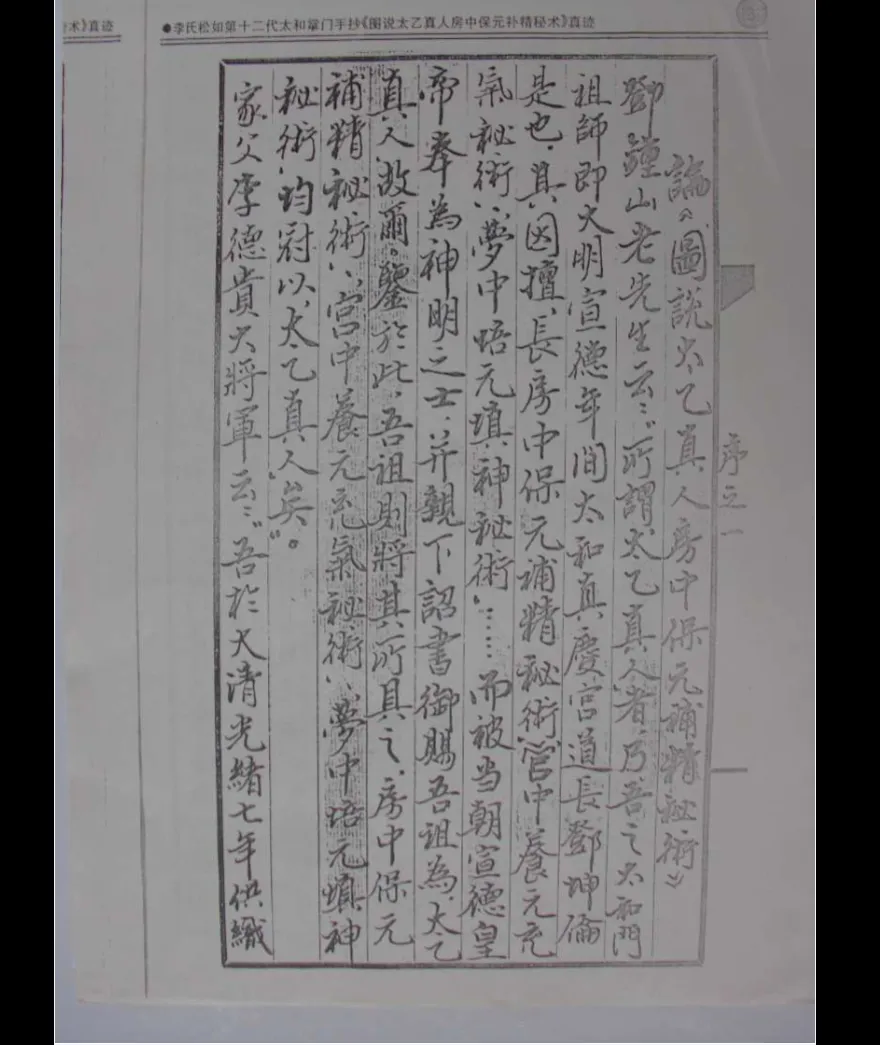 术》真迹
●李氏松如第十二代太和掌门手抄《图说太乙真人房中保元补精秘术》真迹
序之一
論《圖說太乙真人房中保元補精秘術》
鄧鐘山老先生云：“所謂‘太乙真人’者，乃吾之太和門
祖師即大明宣德年间太和真慶宫道長鄧坤倫
是也，其因擅‘長房中保元補精秘術’、‘宫中養元充
氣秘術’、‘夢中悟元填神秘術’……而被当朝宣德皇
帝奉為神明之士，并親下詔書御賜吾祖為‘太乙
真人’故爾。鑒於此，吾祖則將其所具之‘房中保元
補精秘術’、‘宫中養元充氣秘術’、‘夢中悟元填神
秘術’均冠以‘太乙真人’矣。”
家父李德貴大將軍云：“吾於大清光緒七年供職